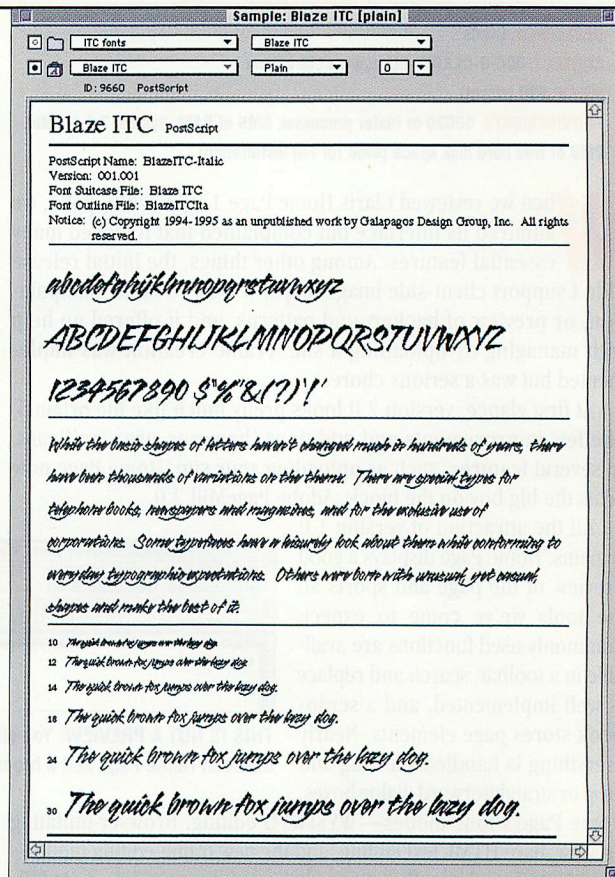 Sample: Blaze ITC [plain]
ITC fonts Blaze ITC
Blaze ITC Plain 0
ID: 9660 PostScript
Blaze ITC PostScript
PostScript Name: BlazeITC-Italic
Version: 001.001
Font Suitcase File: Blaze ITC
Font Outline File: BlazeITCIta
Notice: (c) Copyright 1994-1995 as an unpublished work by Galapagos Design Group, Inc. All rights
reserved.
abcdefghijklmnopqrstuvwxyz
ABCDEFGHIJKLMNOPQRSTUVWXYZ
1234567890 $"%"&(?)'!'
While the basic shapes of letters haven't changed much in hundreds of years, there
have been thousands of variations on the theme. There are special types for
telephone books, newspapers and magazines, and for the exclusive use of
corporations. Some typefaces have a leisurely look about them while conforming to
everyday typographic expectations. Others were born with unusual, yet casual,
shapes and make the best of it.
10 The quick brown fox jumps over the lazy dog.
12 The quick brown fox jumps over the lazy dog.
14 The quick brown fox jumps over the lazy dog.
18 The quick brown fox jumps over the lazy dog.
24 The quick brown fox jumps over the lazy dog.
30 The quick brown fox jumps over the lazy dog.